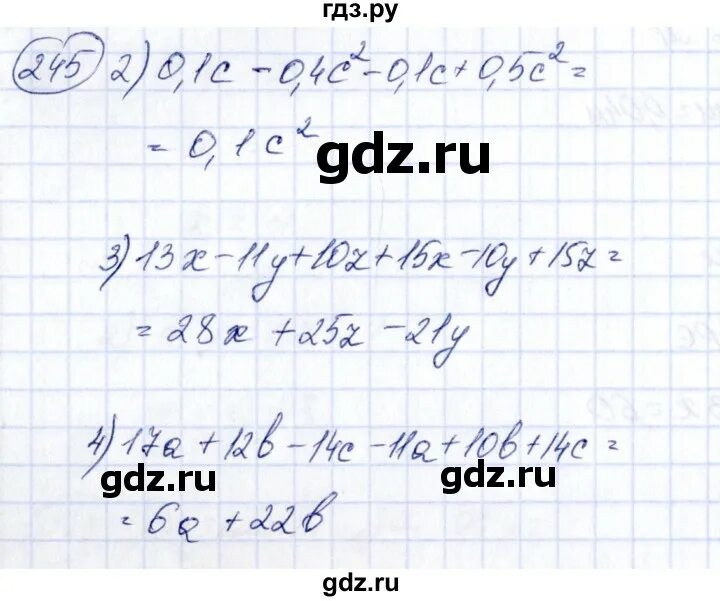 гдз.ру
245 2) 0,1c - 0,4c² - 0,1c + 0,5c² =
= 0,1c²
gdz.ru
3) 13x - 11y + 10z + 15x - 10y + 15z =
= 28x + 25z - 21y
4) 17a + 12b - 14c - 11a + 10b + 14c =
gdz.ru gdz.ru
= 6a + 22b
gdz.ru